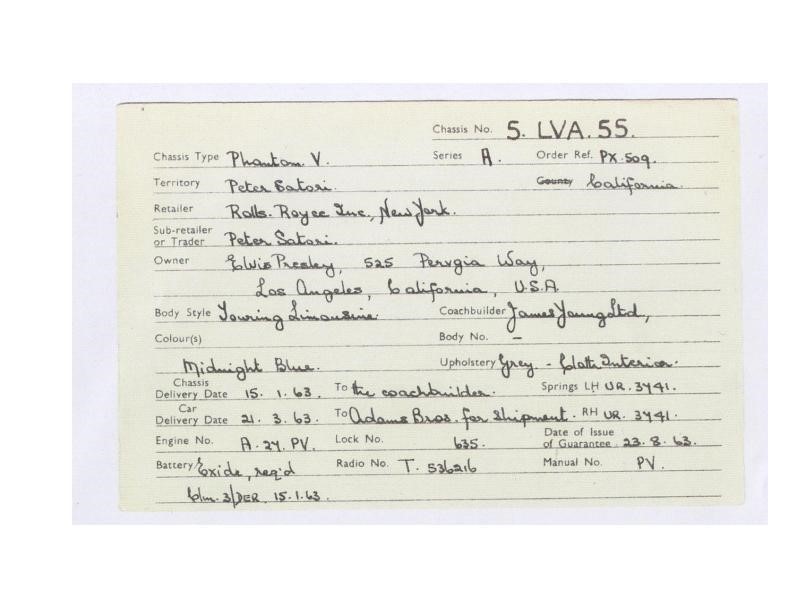 Chassis No. 5. LVA. 55.
Chassis Type Phantom V. Series A. Order Ref. PX.509.
Territory Peter Satori. County California.
Retailer Rolls. Royce Inc, New York.
Sub-retailer
or Trader Peter Satori.
Owner Elvis Presley, 525 Perugia Way,
Los Angeles, California, U.S.A.
Body Style Touring Limousine. Coachbuilder James Young Ltd,
Colour(s) Body No. –
Midnight Blue. Upholstery Grey - Cloth Interior.
Chassis
Delivery Date 15. 1. 63. To the coachbuilder. Springs LH UR. 3741.
Car
Delivery Date 21. 3. 63. To Adams Bros. for shipment. RH UR. 3741.
Engine No. A. 27. PV. Lock No. 635. Date of Issue
of Guarantee 23. 8. 63.
Battery Exide, req'd Radio No. T. 536216 Manual No. PV.
3/DER. 15.1.63.